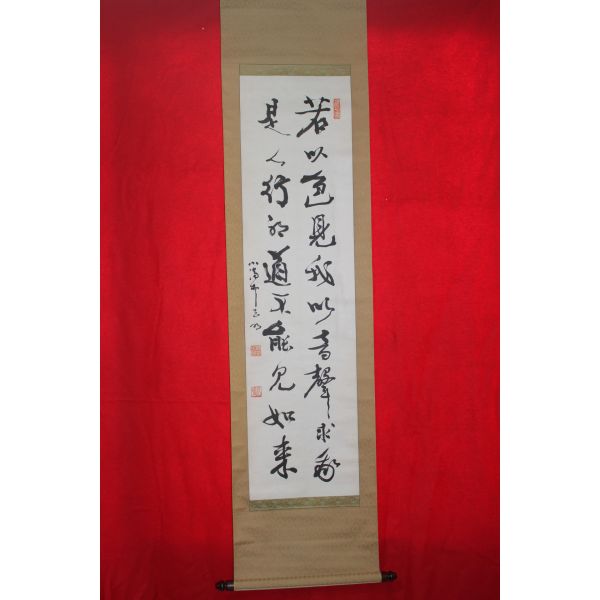 若以色見我以音聲求我
是人行邪道不能見如来